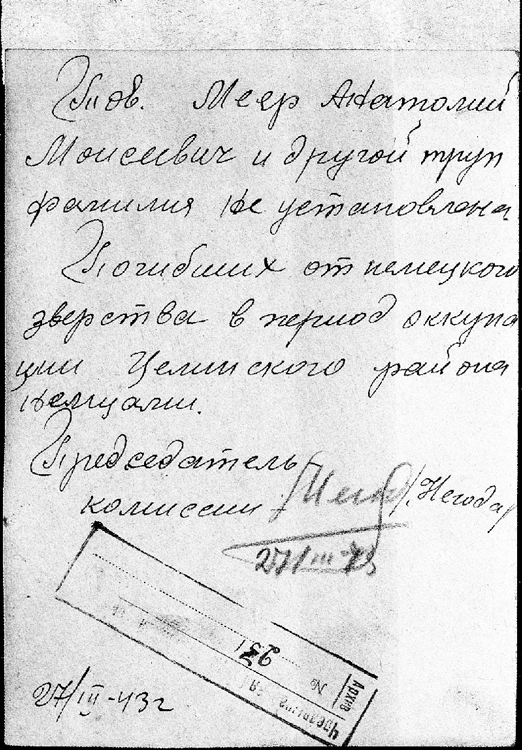 Тов. Меер Анатолий
Моисеевич и другой труп
фамилия не установлена
Погибших от немецкого
зверства в период оккупа
ции Целинского района
немцами.
Председатель
комиссии /Негода/
27/III-43
№ 231
Архив
27/III-43 г